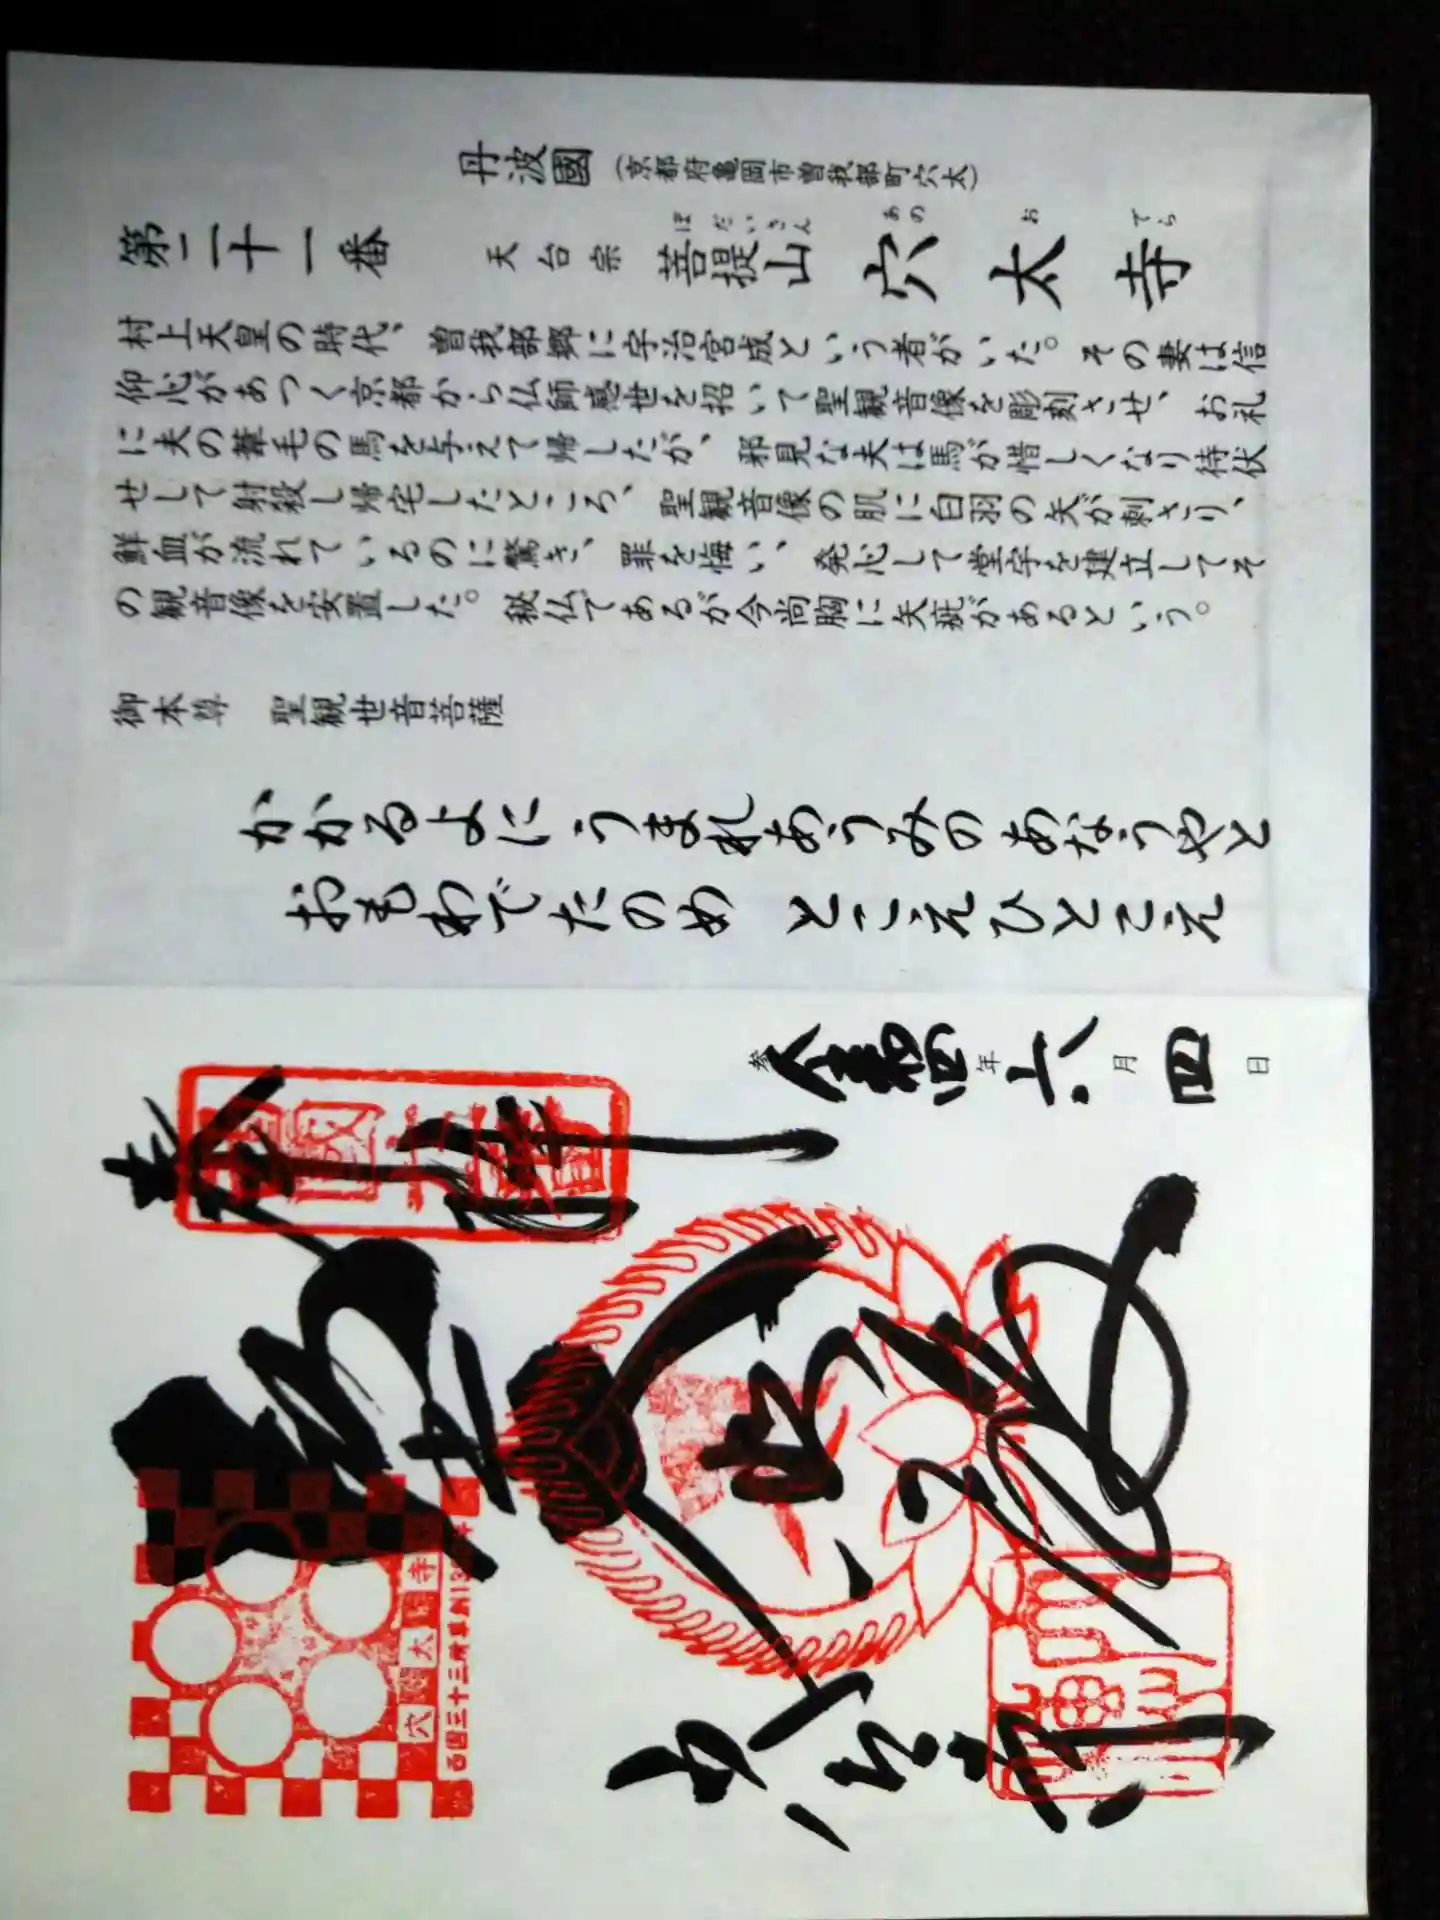 丹波國(京都府亀岡市曽我部町穴太)
ぼだいさん あの お てら
第二十一番 天台宗 菩提山 穴太寺
村上天皇の時代、曽我部郷に宇治宮成という者がいた。その妻は信
仰心があつく京都から仏師感世を招いて聖観音像を彫刻させ、お礼
に夫の葦毛の馬を与えて帰したが、邪見な夫は馬が惜しくなり待伏
せして射殺し帰宅したところ、聖観音像の肌に白羽の矢が刺さり、
鮮血が流れているのに驚き、罪を悔い、発心して堂宇を建立してそ
の観音像を安置した。秘仏であるが今尚胸に矢疵があるという。
御本尊 聖観世音菩薩
かかるよに うまれあうみの あなうやと
おもわでたのめ とこえひとこえ
参 年 六 月 四 日
奉拝
穴太寺
西国三十三所草創1300年